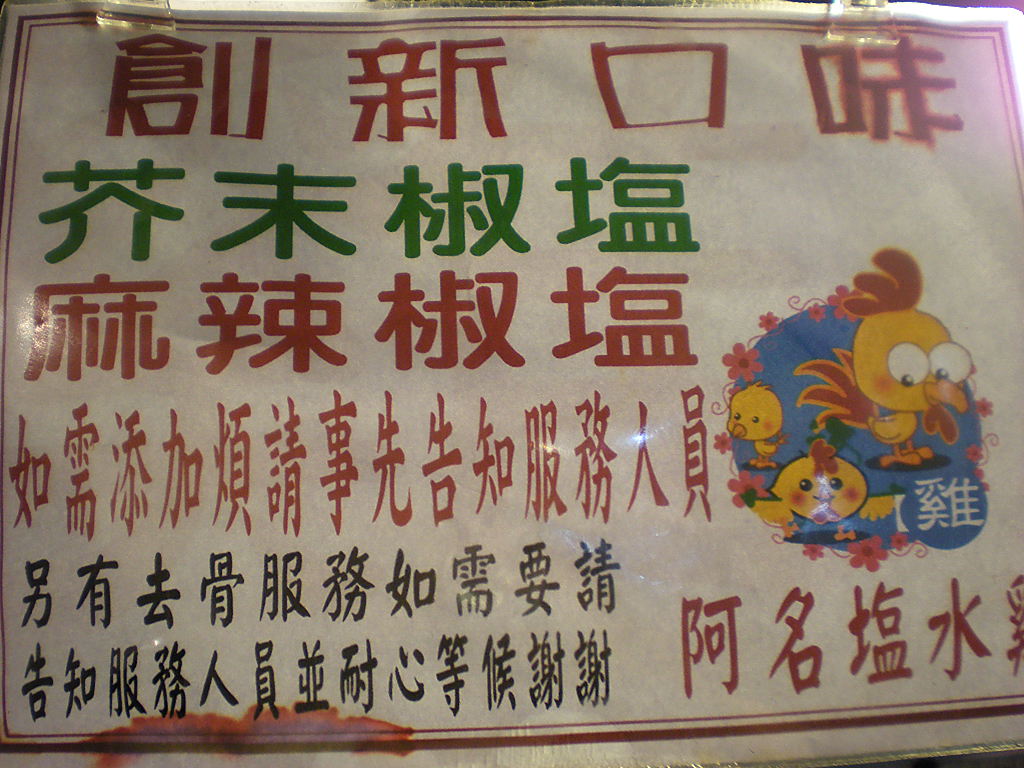 創新口味
芥末椒塩
麻辣椒塩
如需添加煩請事先告知服務人員
雞
另有去骨服務如需要請
告知服務人員並耐心等候謝謝
阿名塩水雞